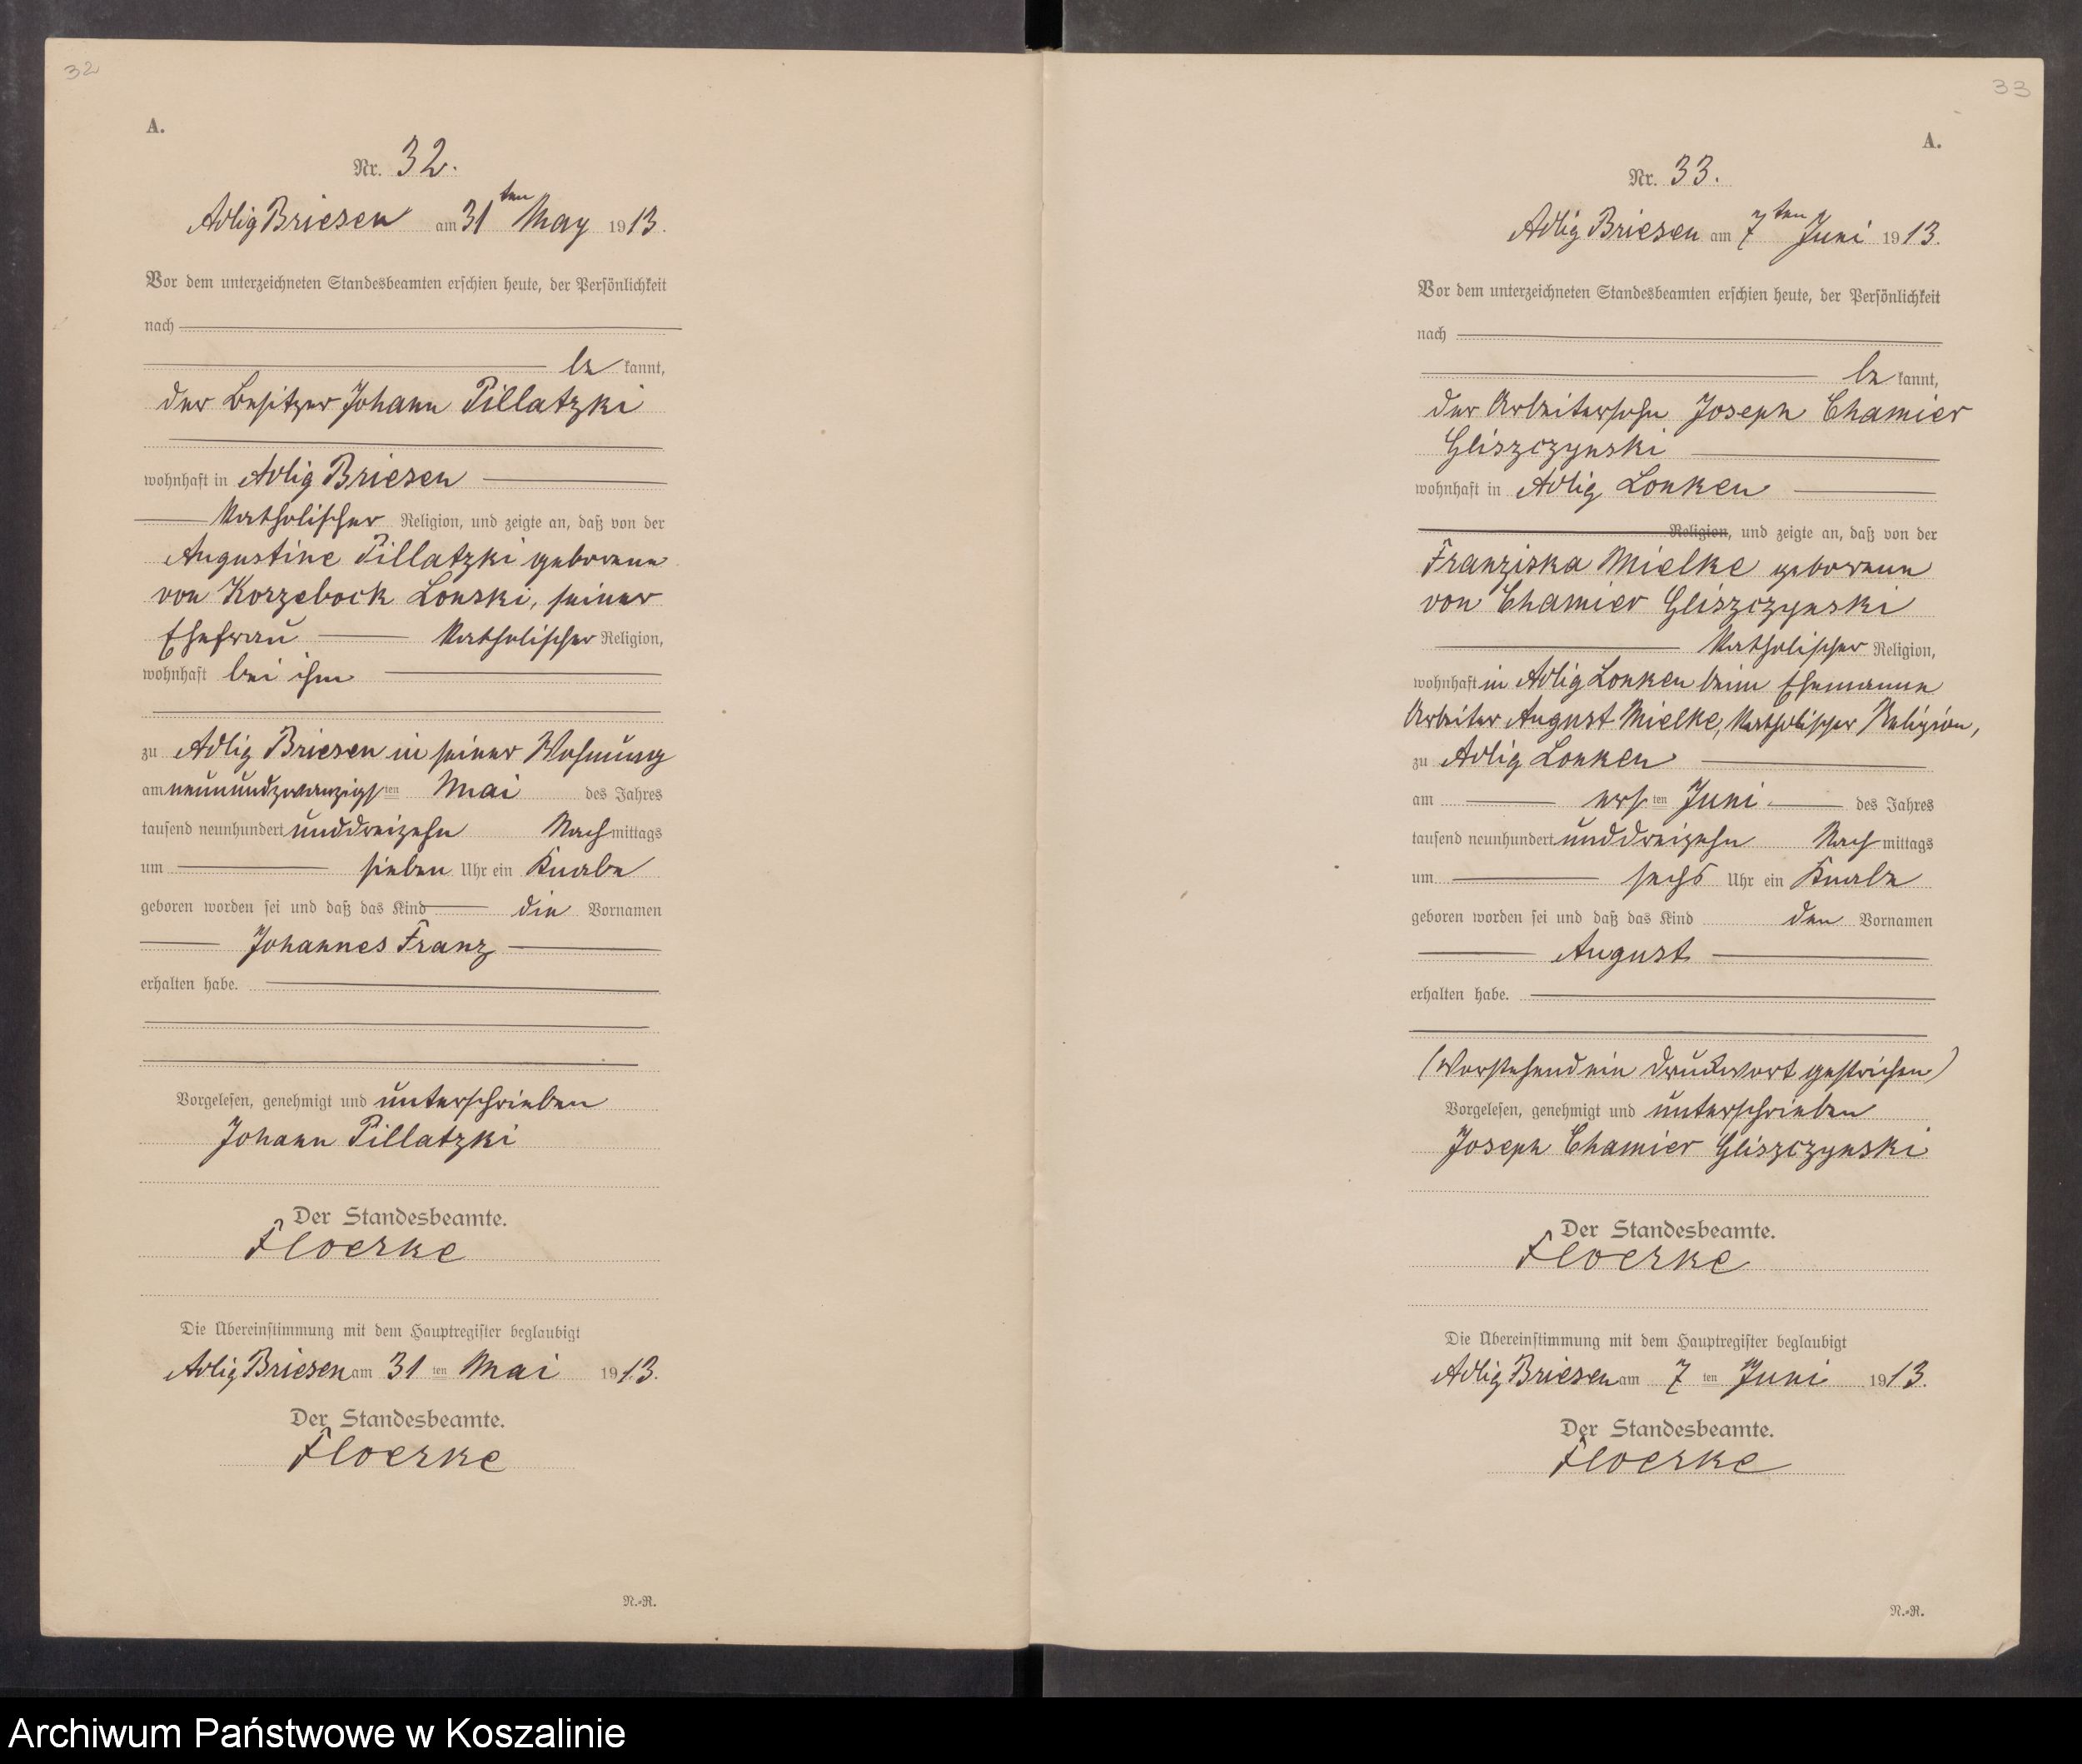 32
A.
Nr. 32.
Adlig Briesen am 31ten May 1913.
Vor dem unterzeichneten Standesbeamten erschien heute, der Persönlichkeit
nach
be kannt,
der Besitzer Johann Pillatzki
wohnhaft in Adlig Briesen
katholischer Religion, und zeigte an, daß von der
Augustine Pillatzki geborene
von Korzebock Lonski, seiner
Ehefrau katholischer Religion,
wohnhaft bei ihm
zu Adlig Briesen in seiner Wohnung
am neunundzwanzigsten Mai des Jahres
tausend neunhundert unddreizehn Nachmittags
um sieben Uhr ein Knabe
geboren worden sei und daß das Kind die Vornamen
Johannes Franz
erhalten habe.
Vorgelesen, genehmigt und unterschrieben
Johann Pillatzki
Der Standesbeamte.
Floerke
Die Übereinstimmung mit dem Hauptregister beglaubigt
Adlig Briesen am 31 ten Mai 1913.
Der Standesbeamte.
Floerke
N.-R.
33
A.
Nr. 33.
Adlig Briesen am 7ten Juni 1913.
Vor dem unterzeichneten Standesbeamten erschien heute, der Persönlichkeit
nach
be kannt,
der Arbeitersohn Joseph Chamier
Gliszczynski
wohnhaft in Adlig Lonken
Religion, und zeigte an, daß von der
Franziska Mielke geborene
von Chamier Gliszczynski
katholischer Religion,
wohnhaft in Adlig Lonken beim Ehemanne
Arbeiter August Mielke, katholischer Religion,
zu Adlig Lonken
am ersten Juni des Jahres
tausend neunhundert unddreizehn Nachmittags
um sechs Uhr ein Knabe
geboren worden sei und daß das Kind den Vornamen
August
erhalten habe.
(Vorstehend ein Druckwort gestrichen)
Vorgelesen, genehmigt und unterschrieben
Joseph Chamier Gliszczynski
Der Standesbeamte.
Floerke
Die Übereinstimmung mit dem Hauptregister beglaubigt
Adlig Briesen am 7 ten Juni 1913.
Der Standesbeamte.
Floerke
N.-R.
Archiwum Państwowe w Koszalinie